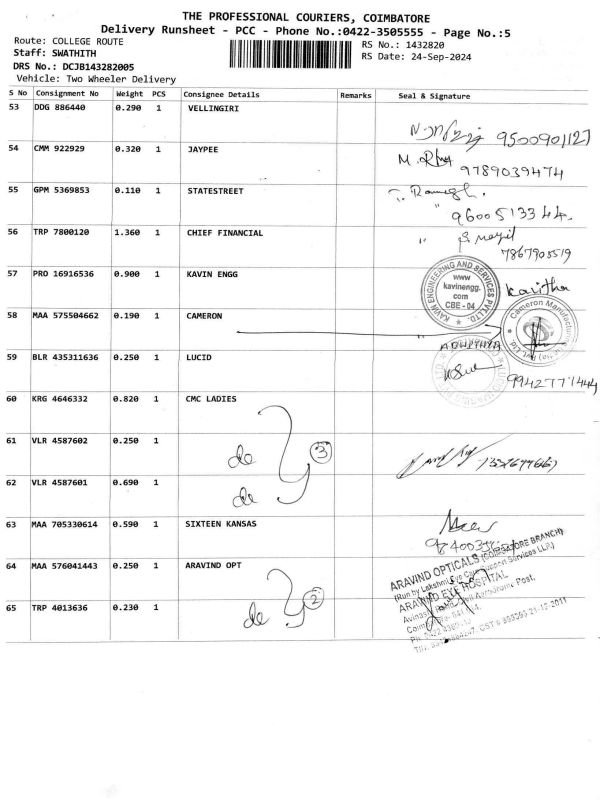 THE PROFESSIONAL COURIERS, COIMBATORE
Delivery Runsheet - PCC - Phone No.:0422-3505555 - Page No.:5
Route: COLLEGE ROUTE
RS No.: 1432820
Staff: SWATHITH
RS Date: 24-Sep-2024
DRS No.: DCJB143282005
Vehicle: Two Wheeler Delivery
S No Consignment No Weight PCS Consignee Details Remarks Seal & Signature
53 DDG 886440 0.290 1 VELLINGIRI
9500901127
54 CMM 922929 0.320 1 JAYPEE
9789039474
55 GPM 5369853 0.110 1 STATESTREET
9600513344.
56 TRP 7800120 1.360 1 CHIEF FINANCIAL
7867905519
57 PRO 16916536 0.900 1 KAVIN ENGG
KAVIN ENGINEERING AND SERVICES PVT LTD.
www
kavinengg.
com
CBE - 04
Kavitha
58 MAA 575504662 0.190 1 CAMERON
Cameron Manufacturing
59 BLR 435311636 0.250 1 LUCID
9942777444
60 KRG 4646332 0.820 1 CMC LADIES
61 VLR 4587602 0.250 1
de 3
62 VLR 4587601 0.690 1
de
63 MAA 705330614 0.590 1 SIXTEEN KANSAS
64 MAA 576041443 0.250 1 ARAVIND OPT
ARAVIND OPTICALS (COIMBATORE BRANCH)
(Run by Lakshmi Eye Care Support Services LLP)
ARAVIND EYE HOSPITAL
65 TRP 4013636 0.230 1
de 2